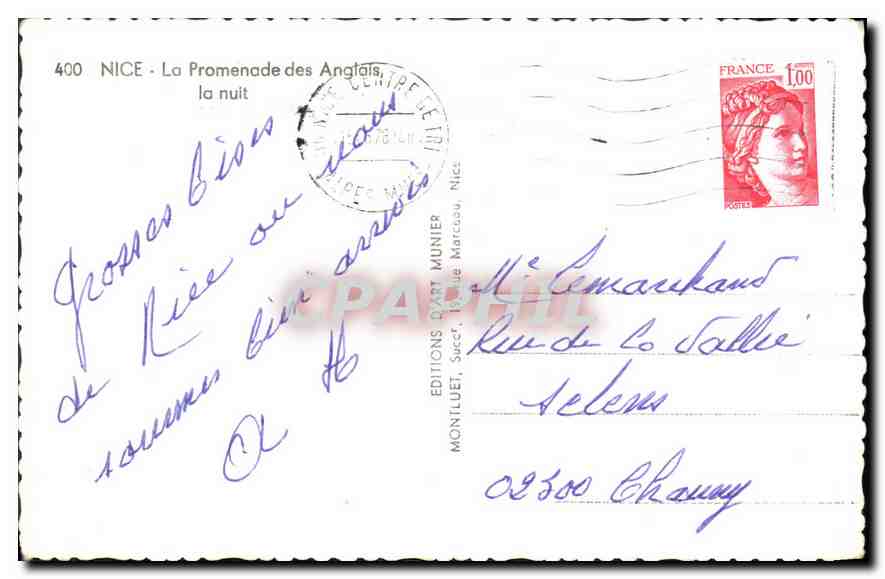 400 NICE - La Promenade des Anglais,
la nuit
NICE CENTRE DE TRI
ALPES MMES
FRANCE 1,00
POSTES
Grosses bises
de Nice ou nous
sommes bien arrivés
A H
EDITIONS D'ART MUNIER
MONTLUET, Succr, 19, rue Marceau, Nice
CPAPHIL
Me Lemarchand
Rue de La Vallée
Selens
02300 Chauny